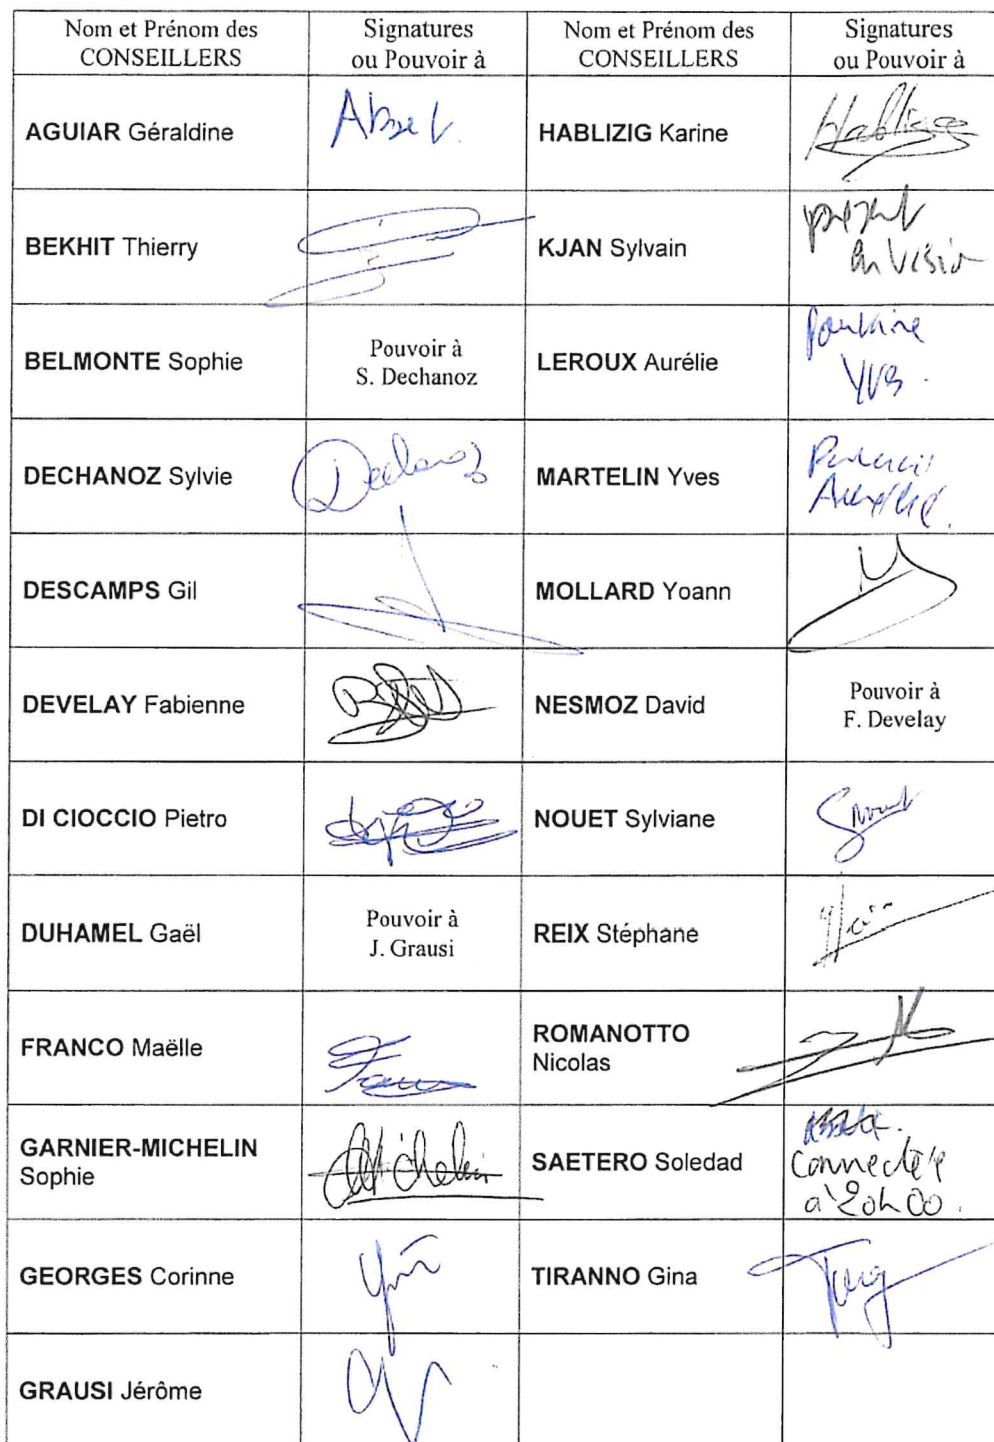 Nom et Prénom des
CONSEILLERS
Signatures
ou Pouvoir à
Nom et Prénom des
CONSEILLERS
Signatures
ou Pouvoir à
AGUIAR Géraldine
HABLIZIG Karine
Hablizig
BEKHIT Thierry
KJAN Sylvain
présent
en visio
BELMONTE Sophie
Pouvoir à
S. Dechanoz
LEROUX Aurélie
Yves
DECHANOZ Sylvie
Dechanoz
MARTELIN Yves
DESCAMPS Gil
MOLLARD Yoann
DEVELAY Fabienne
NESMOZ David
Pouvoir à
F. Develay
DI CIOCCIO Pietro
NOUET Sylviane
DUHAMEL Gaël
Pouvoir à
J. Grausi
REIX Stéphane
FRANCO Maëlle
ROMANOTTO
Nicolas
GARNIER-MICHELIN
Sophie
Michelin
SAETERO Soledad
Connectée
à 20h00.
GEORGES Corinne
TIRANNO Gina
GRAUSI Jérôme